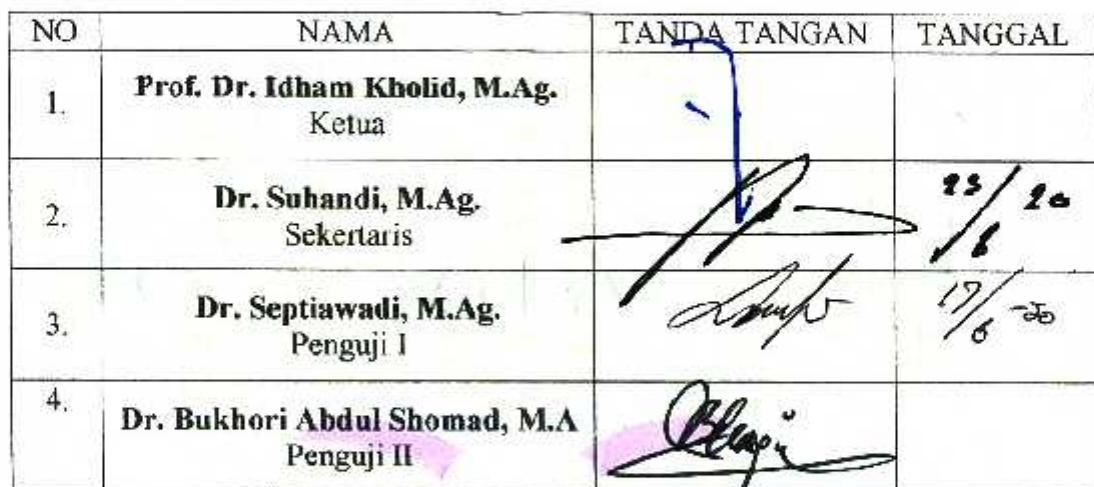 NO NAMA TANDA TANGAN TANGGAL
1. Prof. Dr. Idham Kholid, M.Ag.
Ketua
2. Dr. Suhandi, M.Ag. 23/6 20
Sekertaris
3. Dr. Septiawadi, M.Ag. 17/6 -20
Penguji I
4. Dr. Bukhori Abdul Shomad, M.A
Penguji II